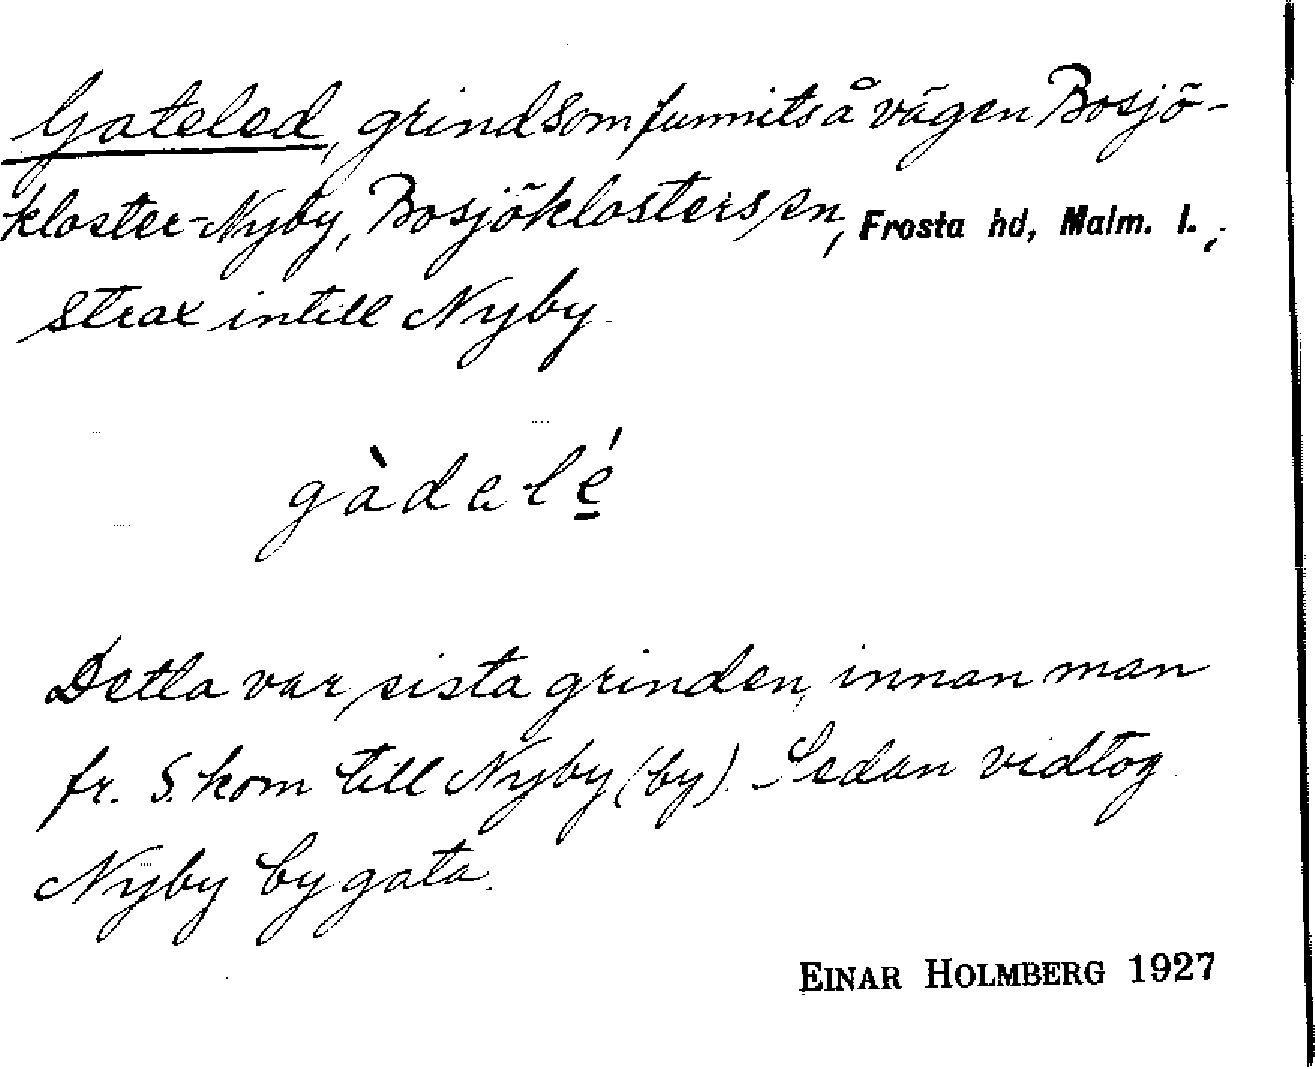 Gateled, grind som funnits å vägen Bosjö-
kloster-Nyby, Bosjöklosters sn, Frosta hd, Malm. l.,
strax intill Nyby.
gàdalé̱
Detta var sista grinden, innan man
fr. S. kom till Nyby (by). Sedan vidtog
Nyby bygata.
EINAR HOLMBERG 1927